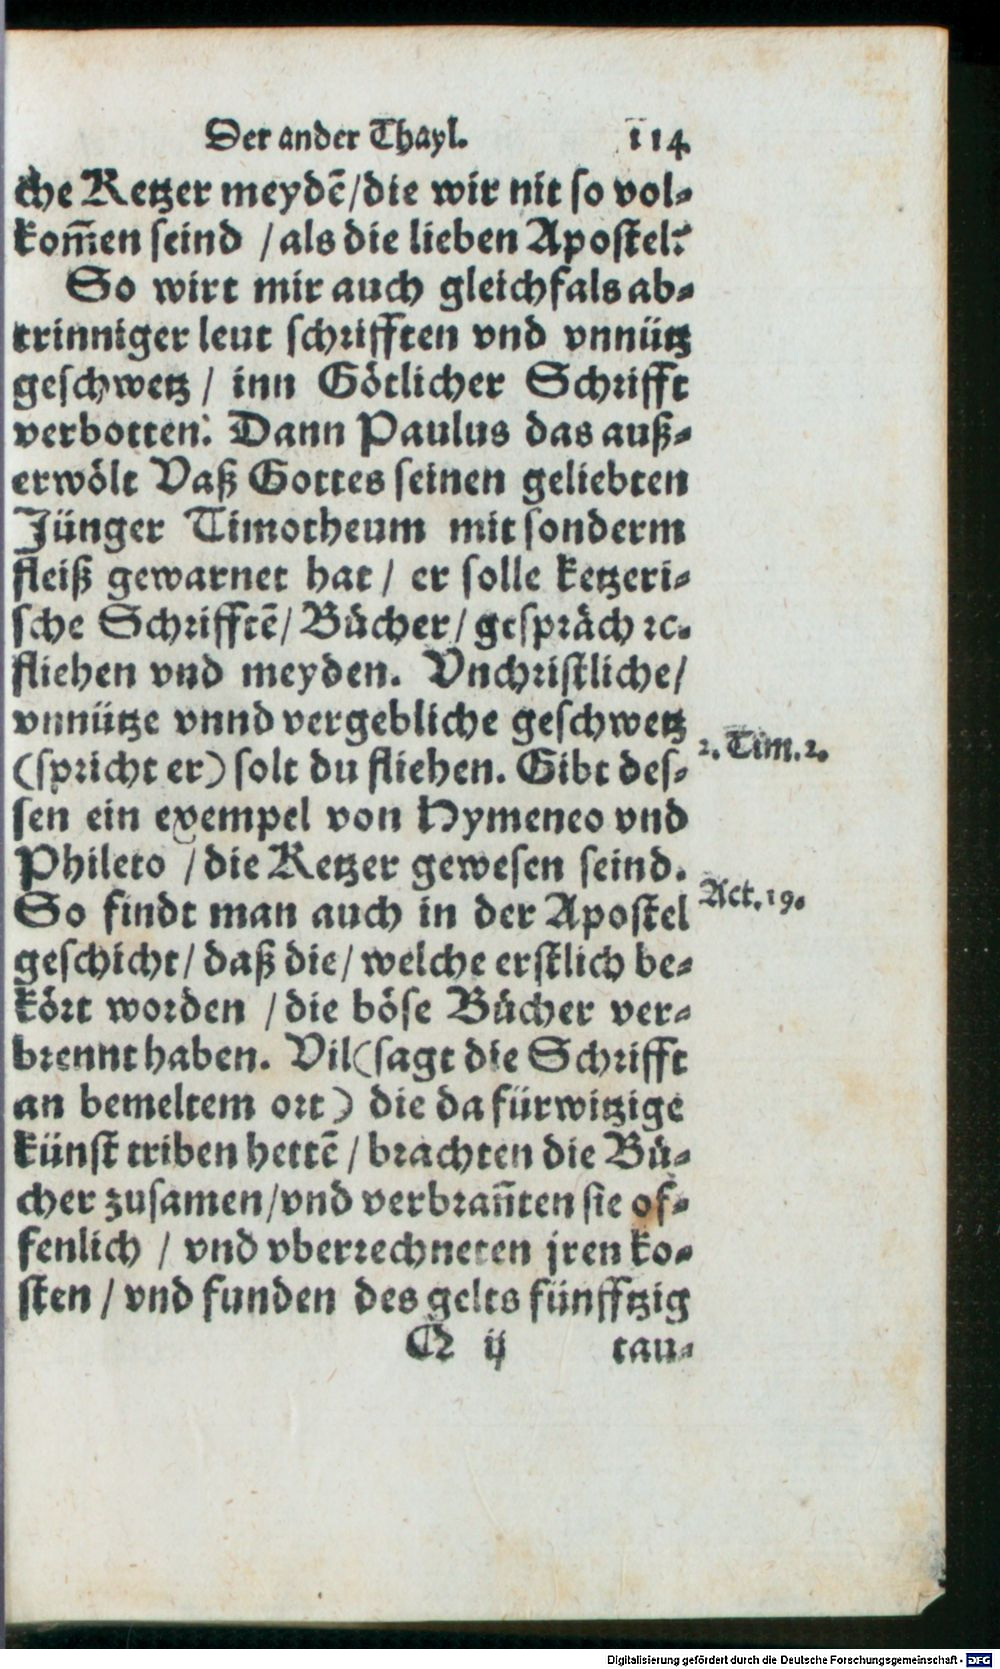 Der ander Thayl. 114
che Ketzer meydẽ/die wir nit so vol-
kom̃en seind /als die lieben Apostel?
So wirt mir auch gleichfals ab-
trinniger leut schrifften vnd vnnütz
geschwetz / inn Götlicher Schrifft
verbotten: Dann Paulus das auß-
erwölt Vaß Gottes seinen geliebten
Jünger Timotheum mit sonderm
fleiß gewarnet hat / er solle ketzeri-
sche Schrifftẽ/ Bücher/ gespräch ꝛc.
fliehen vnd meyden. Vnchristliche/
vnnütze vnnd vergebliche geschwetz
2. Tim. 2.
(spricht er) solt du fliehen. Gibt des-
sen ein exempel von Hymeneo vnd
Phileto /die Ketzer gewesen seind.
Act. 19.
So findt man auch in der Apostel
geschicht/ daß die/ welche erstlich be-
kört worden /die böse Bücher ver-
brennt haben. Vil(sagt die Schrifft
an bemeltem ort) die da fürwitzige
künst triben hettẽ / brachten die Bü-
cher zusamen/vnd verbrañten sie of-
fenlich / vnd vberrechneten jren ko-
sten / vnd funden des gelts fünfftzig
Q ij tau-
Digitalisierung gefördert durch die Deutsche Forschungsgemeinschaft - DFG